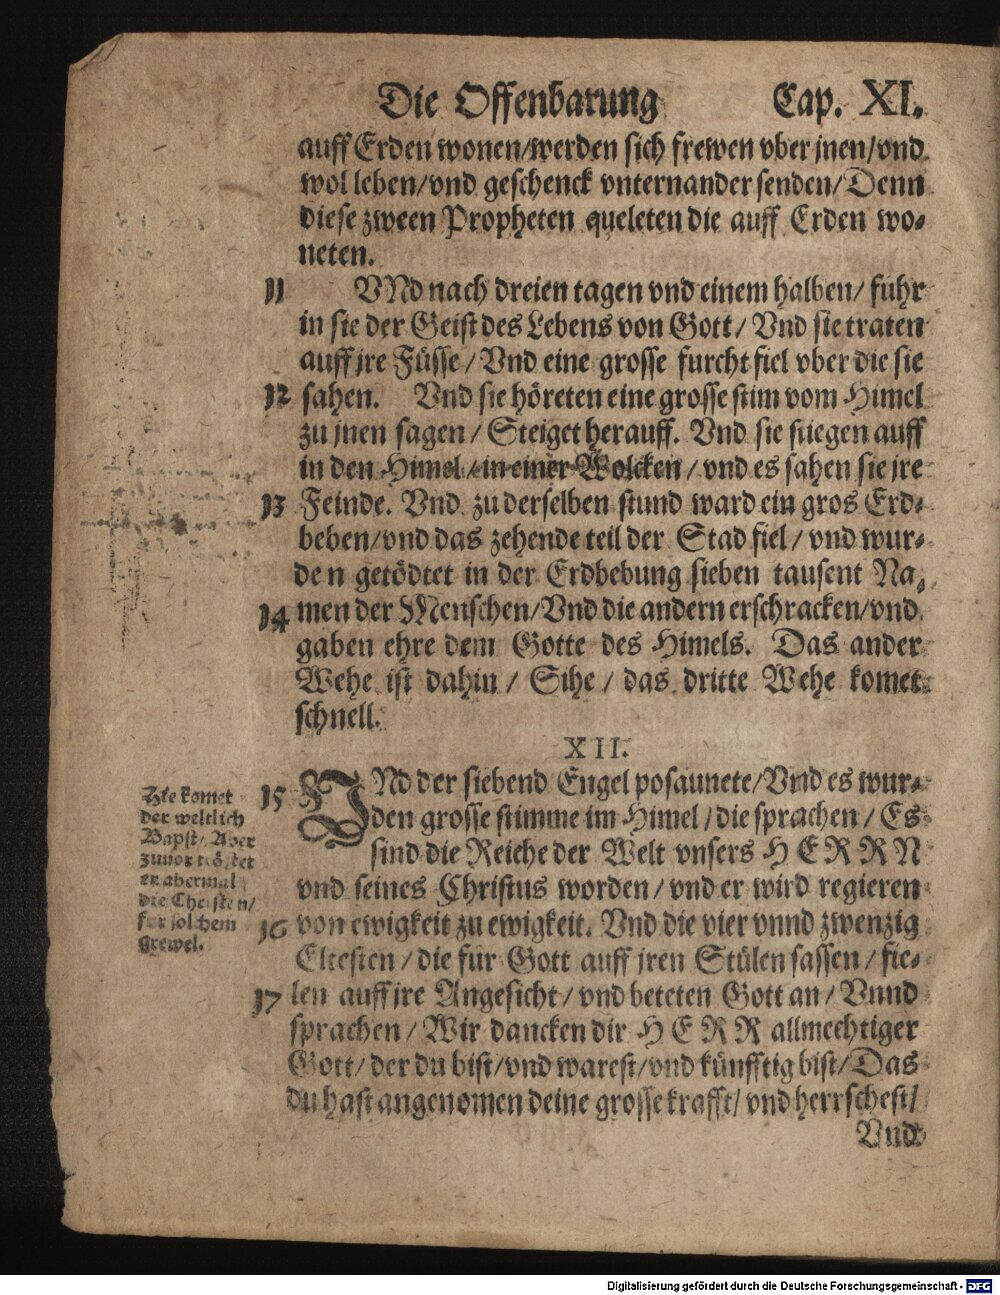 Die Offenbarung Cap. XI.
auff Erden wonen/werden sich frewen vber jnen/vnd
wol leben/vnd geschenck vnternander senden/Denn
diese zween Propheten queleten die auff Erden wo-
neten.
11 VNd nach dreien tagen vnd einem halben/ fuhr
in sie der Geist des Lebens von Gott/ Vnd sie traten
auff jre Füsse/ Vnd eine grosse furcht fiel vber die sie
12 sahen. Vnd sie höreten eine grosse stim vom Himel
zu jnen sagen/ Steiget herauff. Vnd sie stiegen auff
in den Himel/ in einer Wolcken/ vnd es sahen sie jre
13 Feinde. Vnd zu derselben stund ward ein gros Erd-
beben/vnd das zehende teil der Stad fiel/ vnd wur-
den getödtet in der Erdbebung sieben tausent Na-
14 men der Menschen/Vnd die andern erschracken/vnd
gaben ehre dem Gotte des Himels. Das ander
Wehe ist dahin/ Sihe/ das dritte Wehe komet
schnell.
XII.
15 VNd der siebend Engel posaunete/Vnd es wur-
den grosse stimme im Himel/die sprachen/ Es
sind die Reiche der Welt vnsers HERRN
vnd seines Christus worden/ vnd er wird regieren
16 von ewigkeit zu ewigkeit. Vnd die vier vnnd zwenzig
Eltesten/die fur Gott auff jren Stülen sassen/ fie-
17 len auff jre Angesicht/ vnd beteten Gott an/ Vnnd
sprachen/ Wir dancken dir HERR allmechtiger
Gott/ der du bist/vnd warest/vnd künfftig bist/ Das
du hast angenomen deine grosse krafft/ vnd herrschest/
Vnd
komet
der weltlich
Bapst/ Aber
zuuor tröstet
er abermal
die Christen/
fur solchem
grewel.
Digitalisierung gefördert durch die Deutsche Forschungsgemeinschaft - DFG